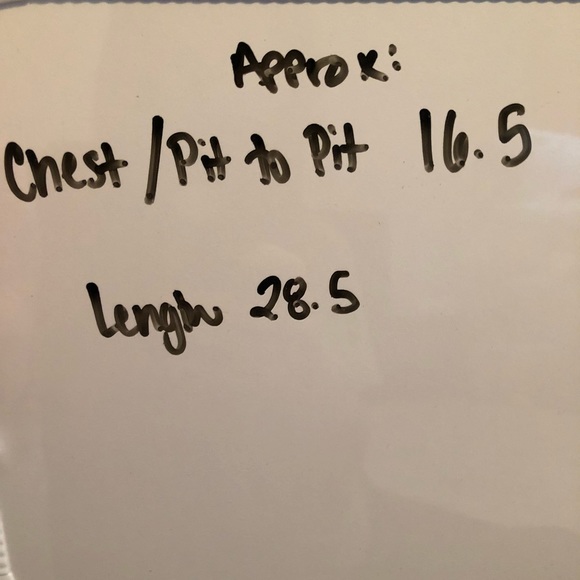 Approx:
Chest / Pit to Pit 16.5
Length 28.5